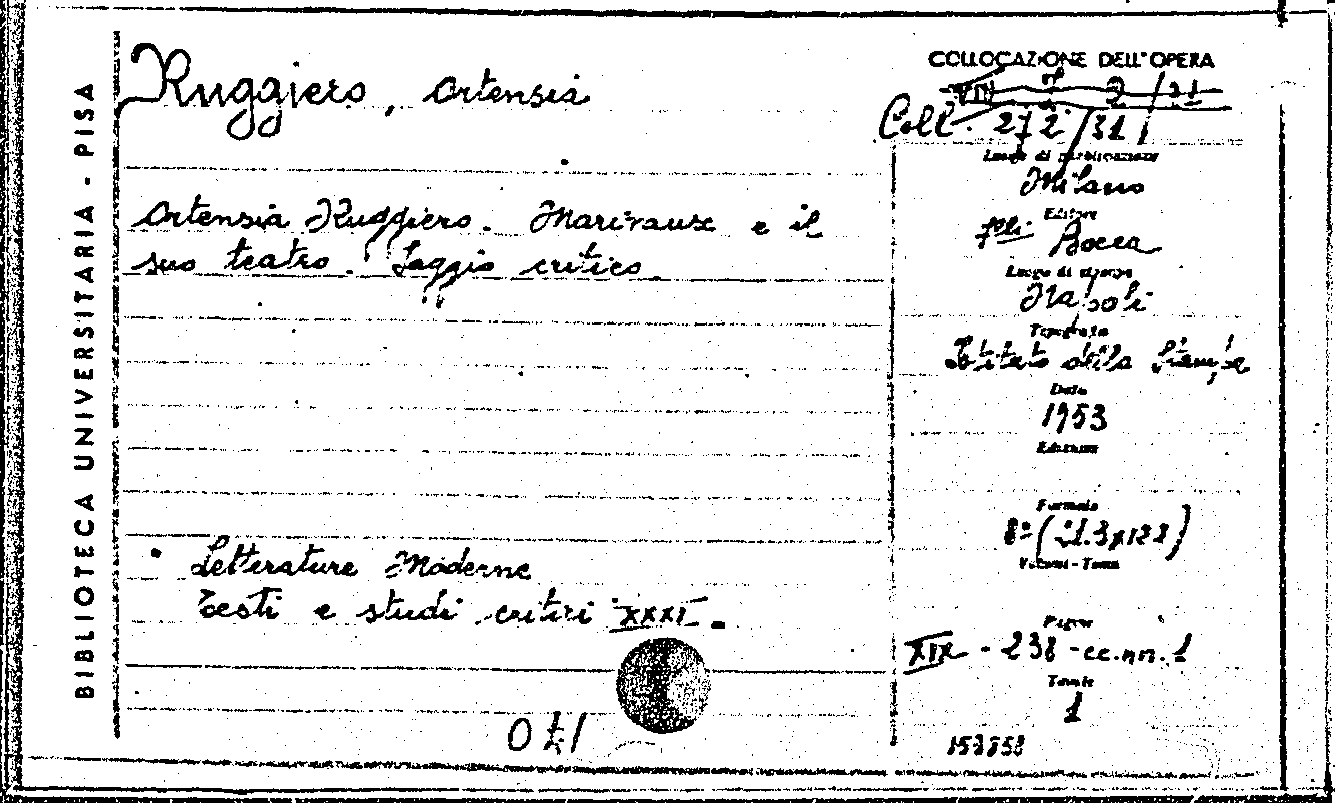 BIBLIOTECA UNIVERSITARIA - PISA
Ruggiero, Ortensia
Ortensia Ruggiero. Marivaux e il
suo teatro. Saggio critico.
Letterature Moderne
Testi e studi critici XXXI.
COLLOCAZIONE DELL'OPERA
Coll. 272/31
Luogo di pubblicazione
Milano
Editore
f.lli Bocca
Luogo di stampa
Napoli
Tipografia
Istituto della Stampa
Data
1953
Edizione
Formato
8°
Volumi - Tomi
Pagine
XIX - 238 - cc.nn. 1
Tavole
1